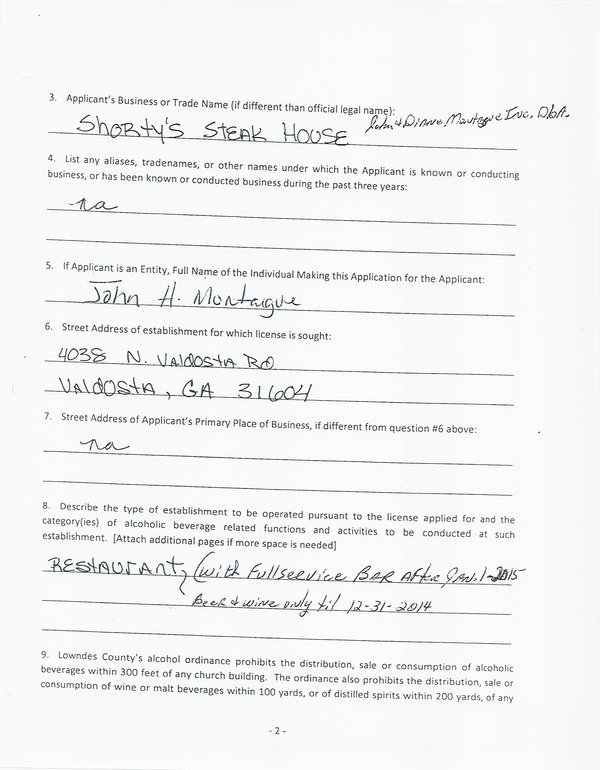 3. Applicant's Business or Trade Name (if different than official legal name):
Shorty's Steak House John & Dianne Montague Inc. DbA.
4. List any aliases, tradenames, or other names under which the Applicant is known or conducting
business, or has been known or conducted business during the past three years:
na
5. If Applicant is an Entity, Full Name of the Individual Making this Application for the Applicant:
John H. Montaigue
6. Street Address of establishment for which license is sought:
4038 N. Valdosta RD
Valdosta, GA 31604
7. Street Address of Applicant's Primary Place of Business, if different from question #6 above:
na
8. Describe the type of establishment to be operated pursuant to the license applied for and the
category(ies) of alcoholic beverage related functions and activities to be conducted at such
establishment. [Attach additional pages if more space is needed]
Restaurant, (with Fullservice Bar After Jan. 1-2015
Beer & wine only til 12-31-2014
9. Lowndes County's alcohol ordinance prohibits the distribution, sale or consumption of alcoholic
beverages within 300 feet of any church building. The ordinance also prohibits the distribution, sale or
consumption of wine or malt beverages within 100 yards, or of distilled spirits within 200 yards, of any
- 2 -